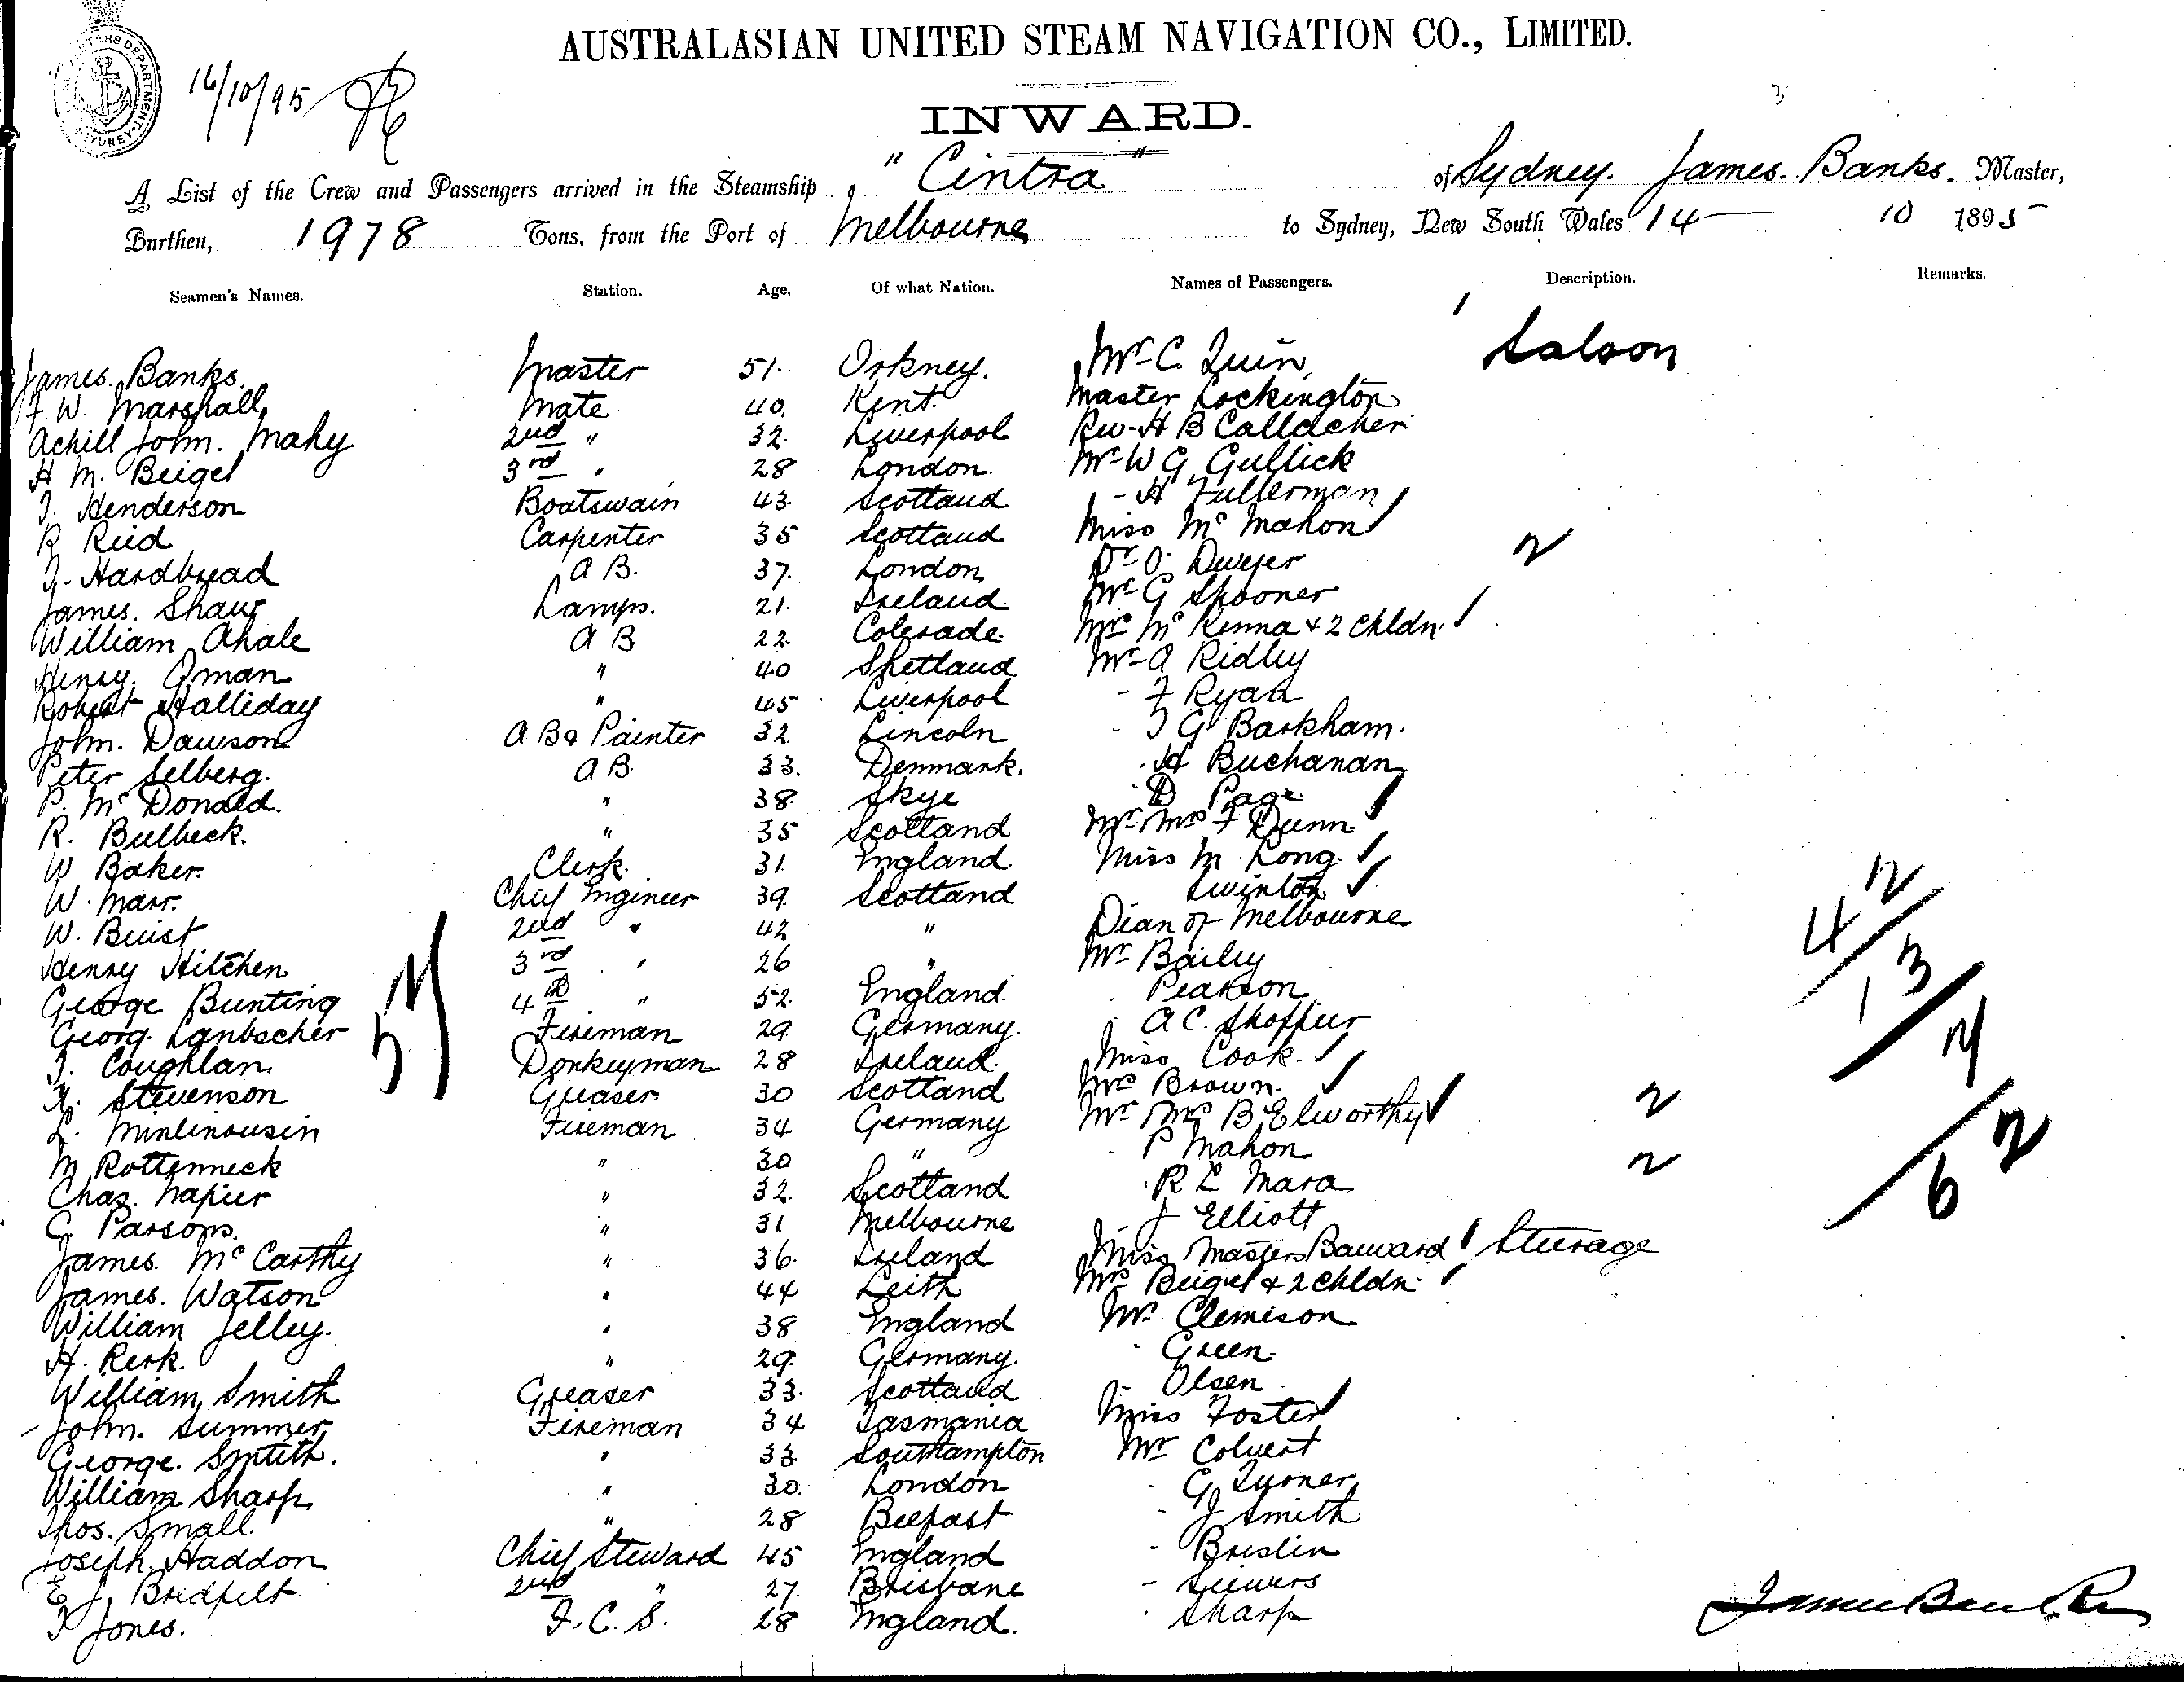 16/10/95
AUSTRALASIAN UNITED STEAM NAVIGATION CO., LIMITED.
3
INWARD.
A List of the Crew and Passengers arrived in the Steamship "Cintra" of Sydney. James. Banks. Master,
Burthen, 1978 Tons, from the Port of Melbourne to Sydney, New South Wales 14 — 10 1895
Seamen's Names. Station. Age. Of what Nation. Names of Passengers. Description. Remarks.
James. Banks. Master 51. Orkney. Mr C. Quin Saloon
F. W. Marshall Mate 40. Kent. Master Lockington
Achill John. Mahy 2nd " 32. Liverpool Rev H B Callacher
H M. Beigel 3rd " 28 London. Mr W G Gullick
J. Henderson Boatswain 43. Scotland - H Fullerman
R Reid Carpenter 35 Scotland Miss Mc Mahon
J. Hardbread A B. 37. London Dr O. Dwyer 2
James. Shaw Lamps. 21. Ireland. Mr G Spooner
William Ahale A B 22. Colerade. Mrs Mc Kenna & 2 Chldn.
Henry. Oman " 40 Shetland Mr A Ridley
Robert Halliday " 45 Liverpool - F Ryan
John. Dawson A B & Painter 32 Lincoln - J G Barkham.
Peter Selberg. A B. 33. Denmark. - H Buchanan
P. Mc Donald. " 38. Skye - D Page
R. Bulbeck. " 35 Scotland Mr Mrs F Dunn
W Baker. Clerk. 31. England. Miss M. Long.
W. Marr. Chief Engineer 39 Scotland Swinton
W. Buist 2nd " 42 " Dean of Melbourne
Henry Hitchen 3rd " 26 " Mr Bailey
George Bunting 4th " 52. England. Pearson
Georg. Lanbscher Fireman 29. Germany. A C. Shoppur
J. Coughlan Donkeyman 28 Ireland. Miss Cook.
Stevenson Greaser 30 Scotland Mrs Brown.
L. Minlinousin Fireman 34 Germany Mr Mrs B Elworthy 2
M Rottenneck " 30 " P Mahon
Chas. Napier " 32. Scotland R L Mara 2
G. Parsons. " 31 Melbourne J Elliott
James. Mc Carthy " 36. Ireland Miss Masters Bauward Steerage
James. Watson " 44 Leith Mrs Beigel & 2 Chldn.
William Jelley. " 38 England Mr Clemison
H. Rerk. " 29. Germany. - Green.
William Smith Greaser 33. Scotland - Olsen.
John. Summer Fireman 34 Tasmania Miss Foster
George. Smtith. " 33 Southampton Mr Colvert
William Sharp " 30. London - G Turner
Thos. Small. " 28 Belfast - J Smith
Joseph. Haddon Chief Steward 45 England - Breslin
E J. Bredfelt 2nd " 27. Brisbane - Siewers
J Jones. F. C. S. 28 England. - Sharp
James Banks